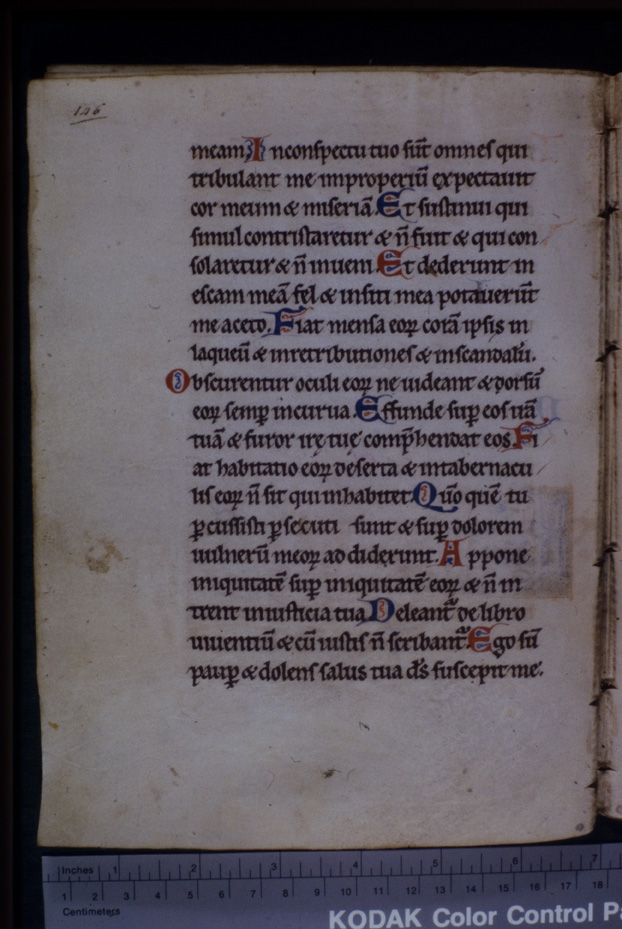 146
meam; Inconspectu tuo sūt omnes qui
tribulant me improperiū expectauit
cor meum & miseriā. Et sustinui qui
simul contristaretur & n̄ fuit & qui con
solaretur & n̄ inueni. Et dederunt in
escam meā fel & insiti mea potauerūt
me aceto. Fiat mensa eoꝝ corā ipsis in
laqueū & inretributiones & inscandalū.
Obscurentur oculi eoꝝ ne uideant & dorsū
eoꝝ semꝑ incurua. Effunde suꝑ eos irā
tuā & furor irę tuę comp̄hendat eos. Fi
at habitatio eoꝝ deserta & intabernacu
lis eoꝝ n̄ sit qui inhabitet. Qūo quē tu
ꝑcussisti ꝑsecuti sunt & suꝑ dolorem
uulnerū meoꝝ addiderunt. Appone
iniquitatē suꝑ iniquitatē eoꝝ & n̄ in
trent iniusticia tua. Deleant᷑ de libro
uiuentiū & cū iustis n̄ scribant᷑. Ego sū
pauꝑ & dolens salus tua d̄s suscepit me.
Inches 1 2 3 4 5 6 7
1 2 3 4 5 6 7 8 9 10 11 12 13 14 15 16 17 18
Centimetres
KODAK Color Control Pa